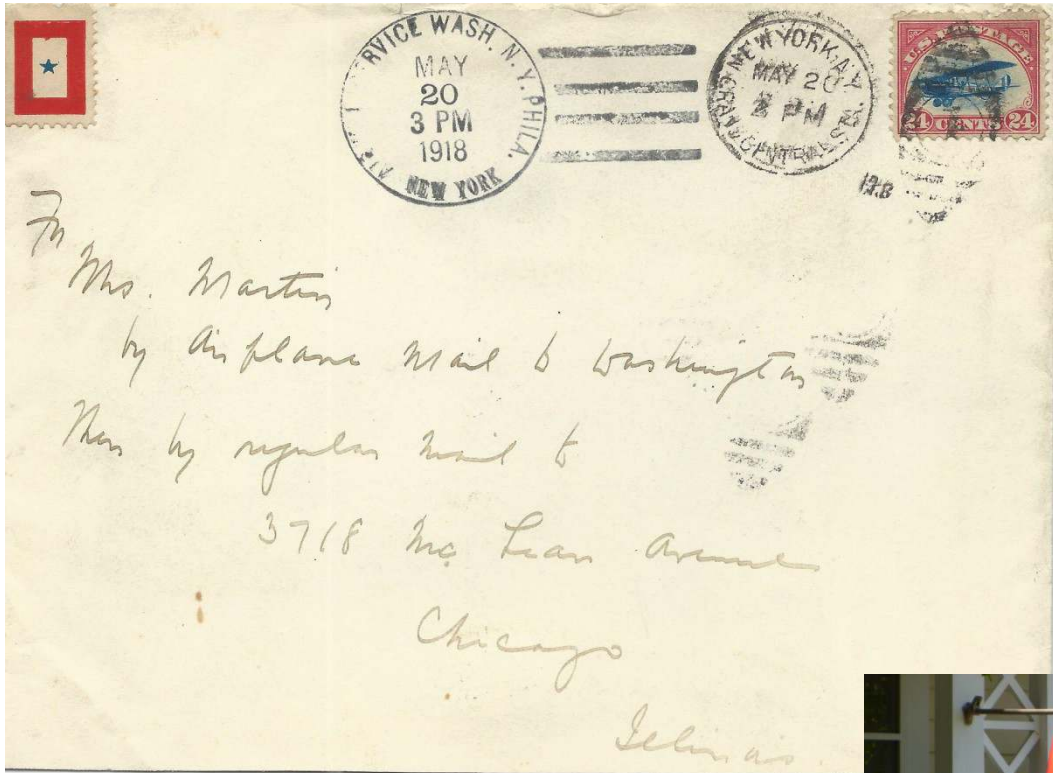 AIR MAIL SERVICE WASH. N.Y. PHILA.
MAY
20
3 PM
1918
NEW YORK
NEW YORK, N.Y.
MAY 20
PM
GRAND CENTRAL STA.
U.S. POSTAGE
24 CENTS 24
To
Mrs. Martin
by Airplane Mail to Washington
Then by regular Mail to
3718 Mc Lean Avenue
Chicago
Illinois